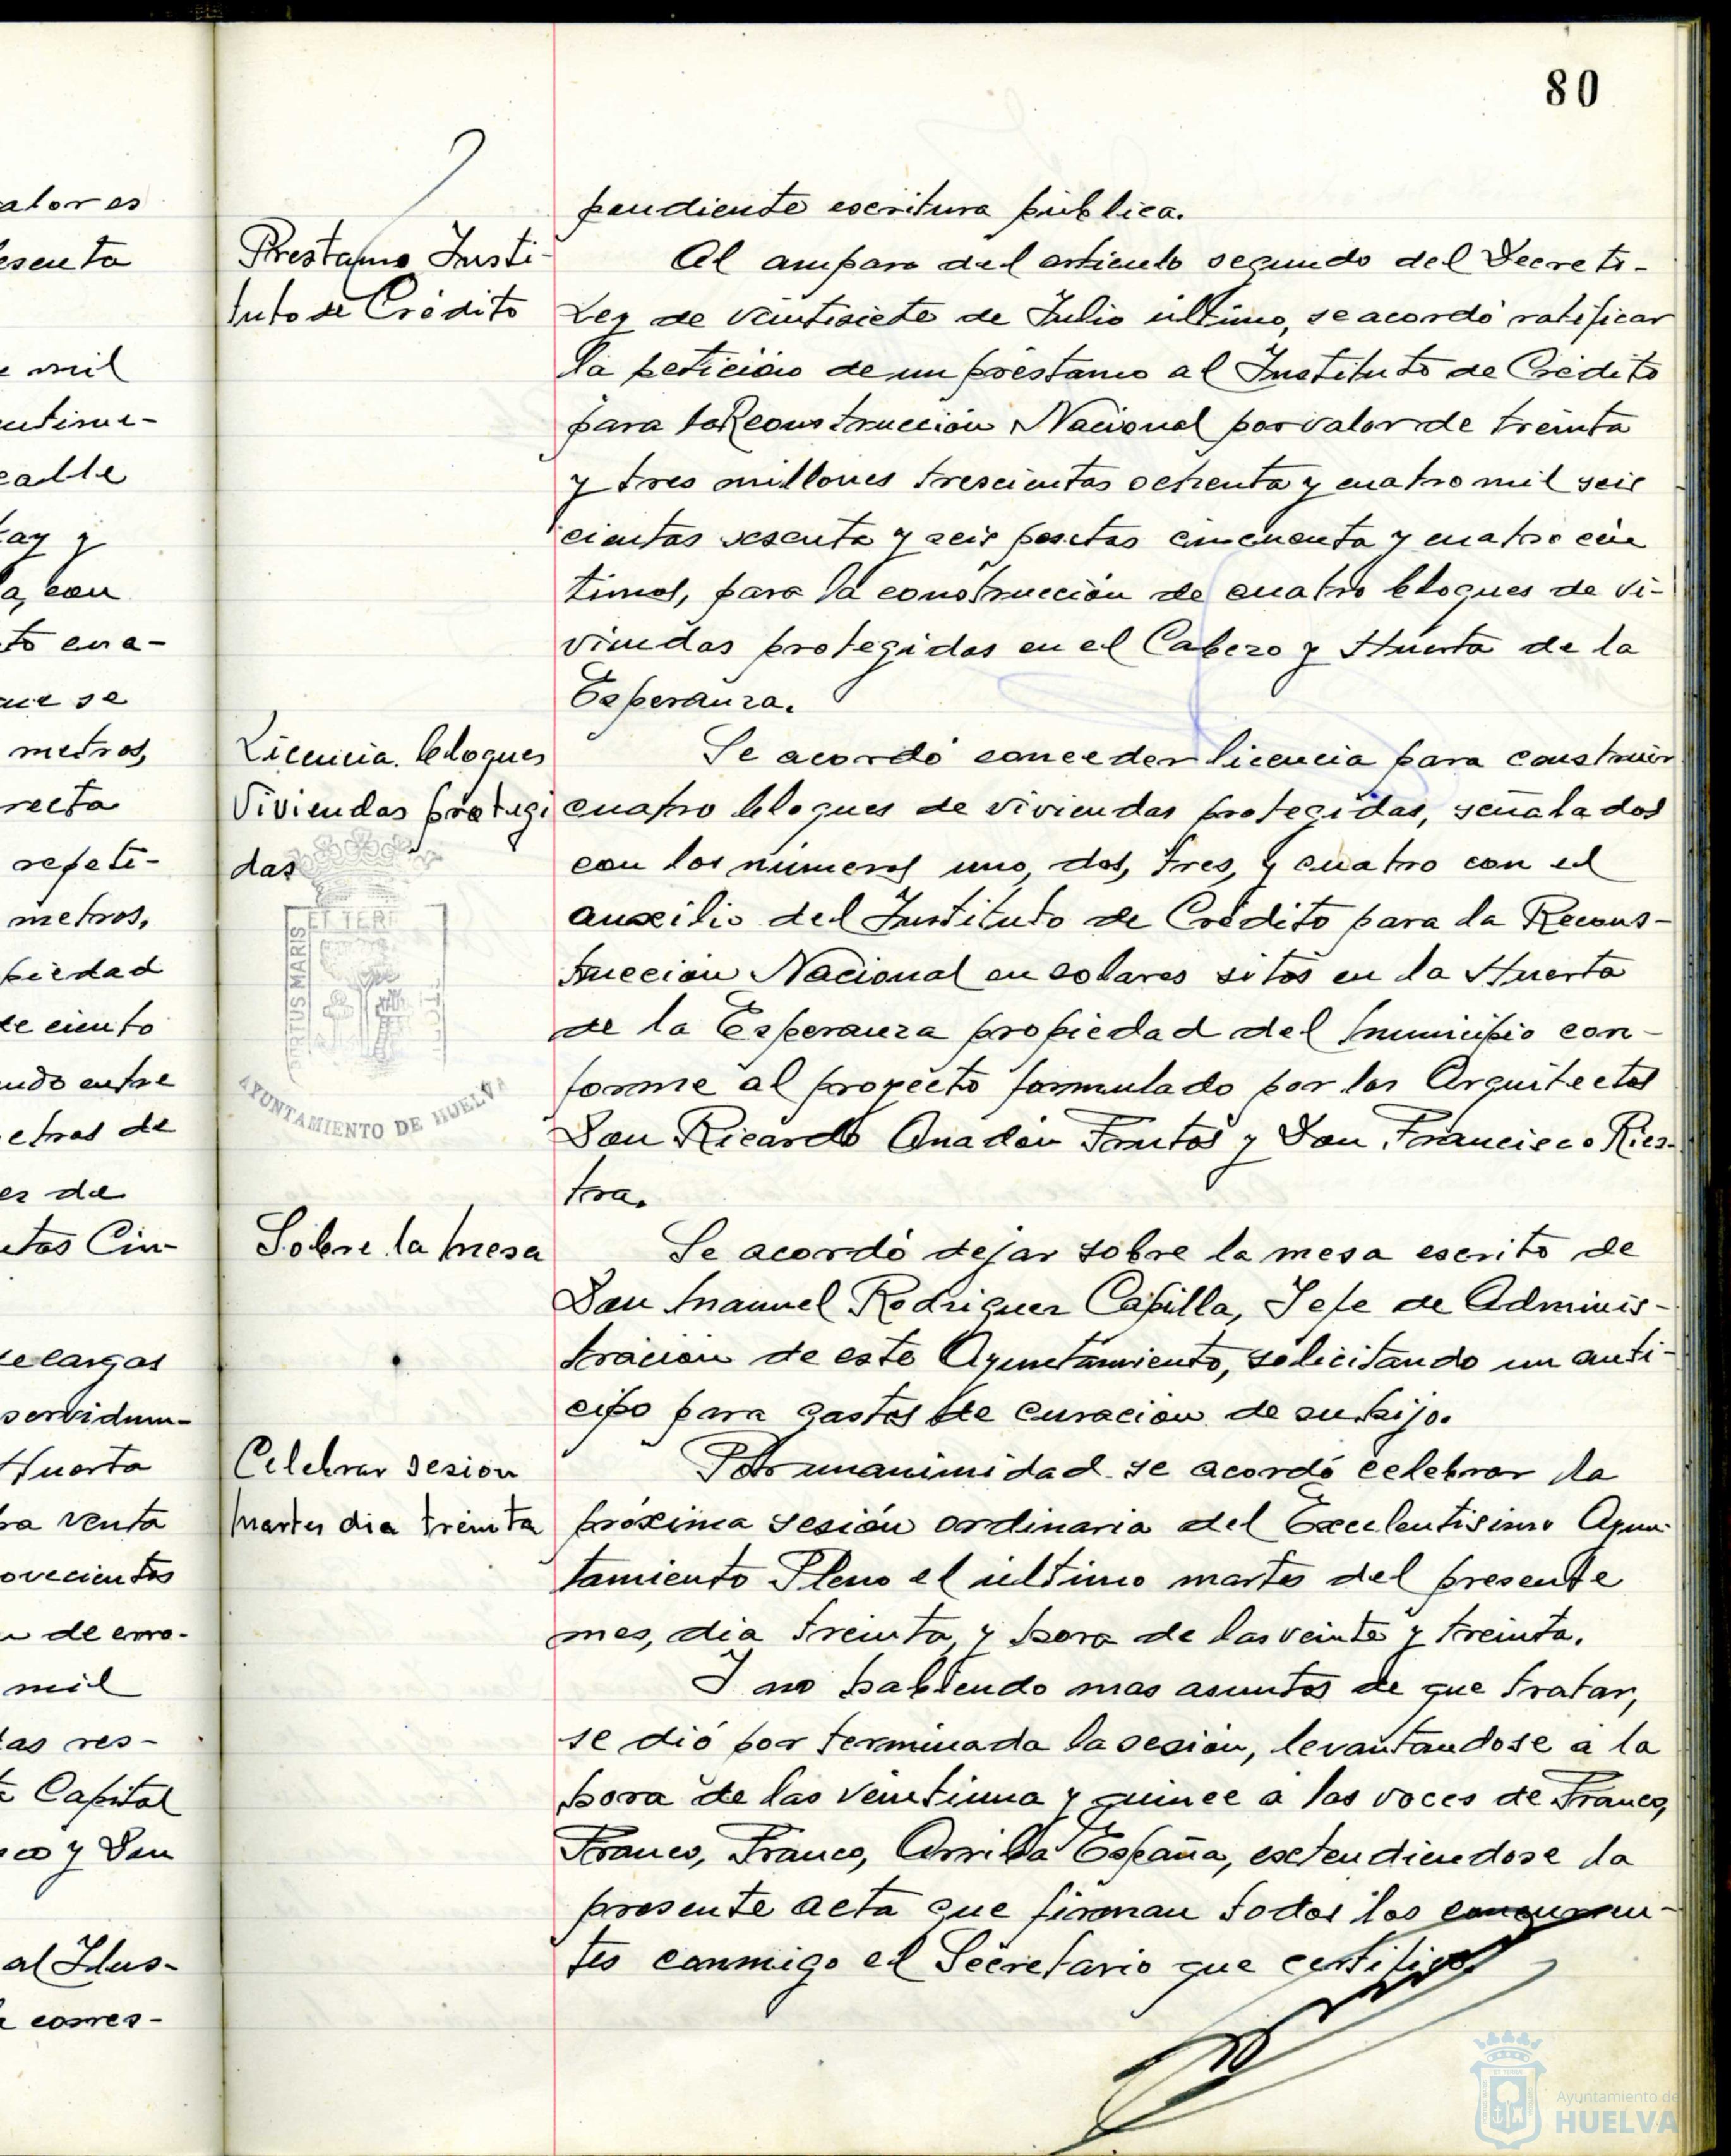 80
alores
esenta
mil
calle
ay y
a, con
to ena-
que se
metros,
recta
repeti-
metros,
piedad
te ciento
ndo entre
etros de
es de
etas Cin-
e largas
servidum-
Huerta
ra venta
ovecientos
de erro-
mil
tas res-
Capital
co y Don
al Ilus-
corres-
Prestamo Insti-
tuto de Crédito
Licencia bloques
Viviendas protegi
das
PORTUS MARIS
ET TERR
AYUNTAMIENTO DE HUELVA
Sobre la mesa
Celebrar sesion
martes dia treinta
pondiente escritura pública.
Al amparo del articulo segundo del Decreto-
Ley de veintisiete de Julio último, se acordó ratificar
la petición de un préstamo al Instituto de Crédito
para la Reconstrucción Nacional por valor de treinta
y tres millones trescientas ochenta y cuatro mil seis
cientas sesenta y seis pesetas cincuenta y cuatro cén
timos, para la construcción de cuatro bloques de vi-
viendas protegidas en el Cabezo y Huerta de la
Esperanza.
Se acordó conceder licencia para construir
cuatro bloques de viviendas protegidas, señalados
con los números uno, dos, tres, y cuatro con el
auxilio del Instituto de Crédito para la Recons-
trucción Nacional en solares sitos en la Huerta
de la Esperanza propiedad del municipio con-
forme al proyecto formulado por los Arquitectos
Don Ricardo Anadón Frutos y Don Francisco Ries-
tra.
Se acordó dejar sobre la mesa escrito de
Don Manuel Rodriguez Capilla, Jefe de Adminis-
tración de este Ayuntamiento, solicitando un anti-
cipo para gastos de curación de su hijo.
Por unanimidad se acordó celebrar la
próxima sesión ordinaria del Excelentisimo Ayun-
tamiento Pleno el último martes del presente
mes, dia treinta, y hora de las veinte y treinta.
I no habiendo mas asuntos de que tratar,
se dió por terminada la sesión, levantandose a la
hora de las veintiuna y quince a las voces de Franco,
Franco, Franco, Arriba España, extendiendose la
presente acta que firman todos los concurren-
tes conmigo el Secretario que certifico.
Ayuntamiento de
HUELVA